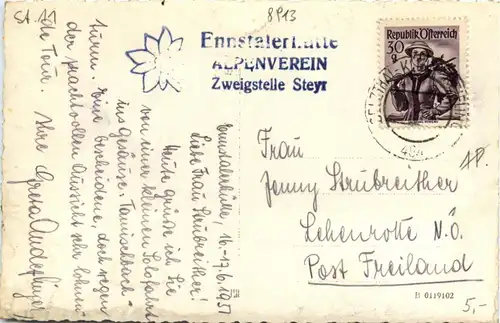 St. 15
8913
Ennstalerhütte
ALPENVEREIN
Zweigstelle Steyr
Republik Österreich
30
g
Ennstalerhütte, 16.-17.6.1951
Liebe Frau Strubreither!
Heute grüße ich Sie
von einer kleinen Solofahrt
ins Gesäuse. Tamischbach-
turm. Eine bescheidene, doch wegen
der prachtvollen Aussicht sehr lohnen-
de Tour. Ihre Greta
Frau
Jenny Strubreither
Lehenrotte N.Ö.
Post Freiland
B 0119102
5,-